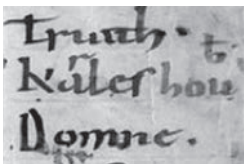 truuth.
kaleſ hou
Domne.